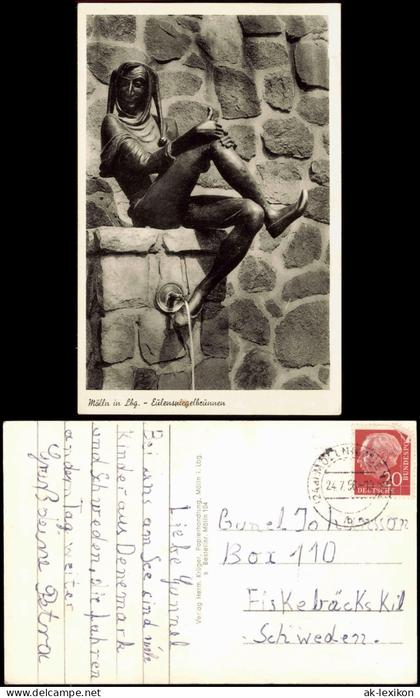 Mölln in Lbg. - Eulenspiegelbrunnen
Liebe Gunnel
Bei uns am See sind viele
Kinder aus Dänemark
und Schweden, die fahren
andern Tag weiter
Gruß deine Petra
Verlag Herm. Krüger, Papierhandlung, Mölln i. Lbg.
Bestellnr. Mölln 104
(24a) MÖLLN
24.7.56
DEUTSCHE BUNDESPOST
20
Gunel Johanson
Box 110
Fiskebäckskil
Schweden.
© ak-lexikon.de